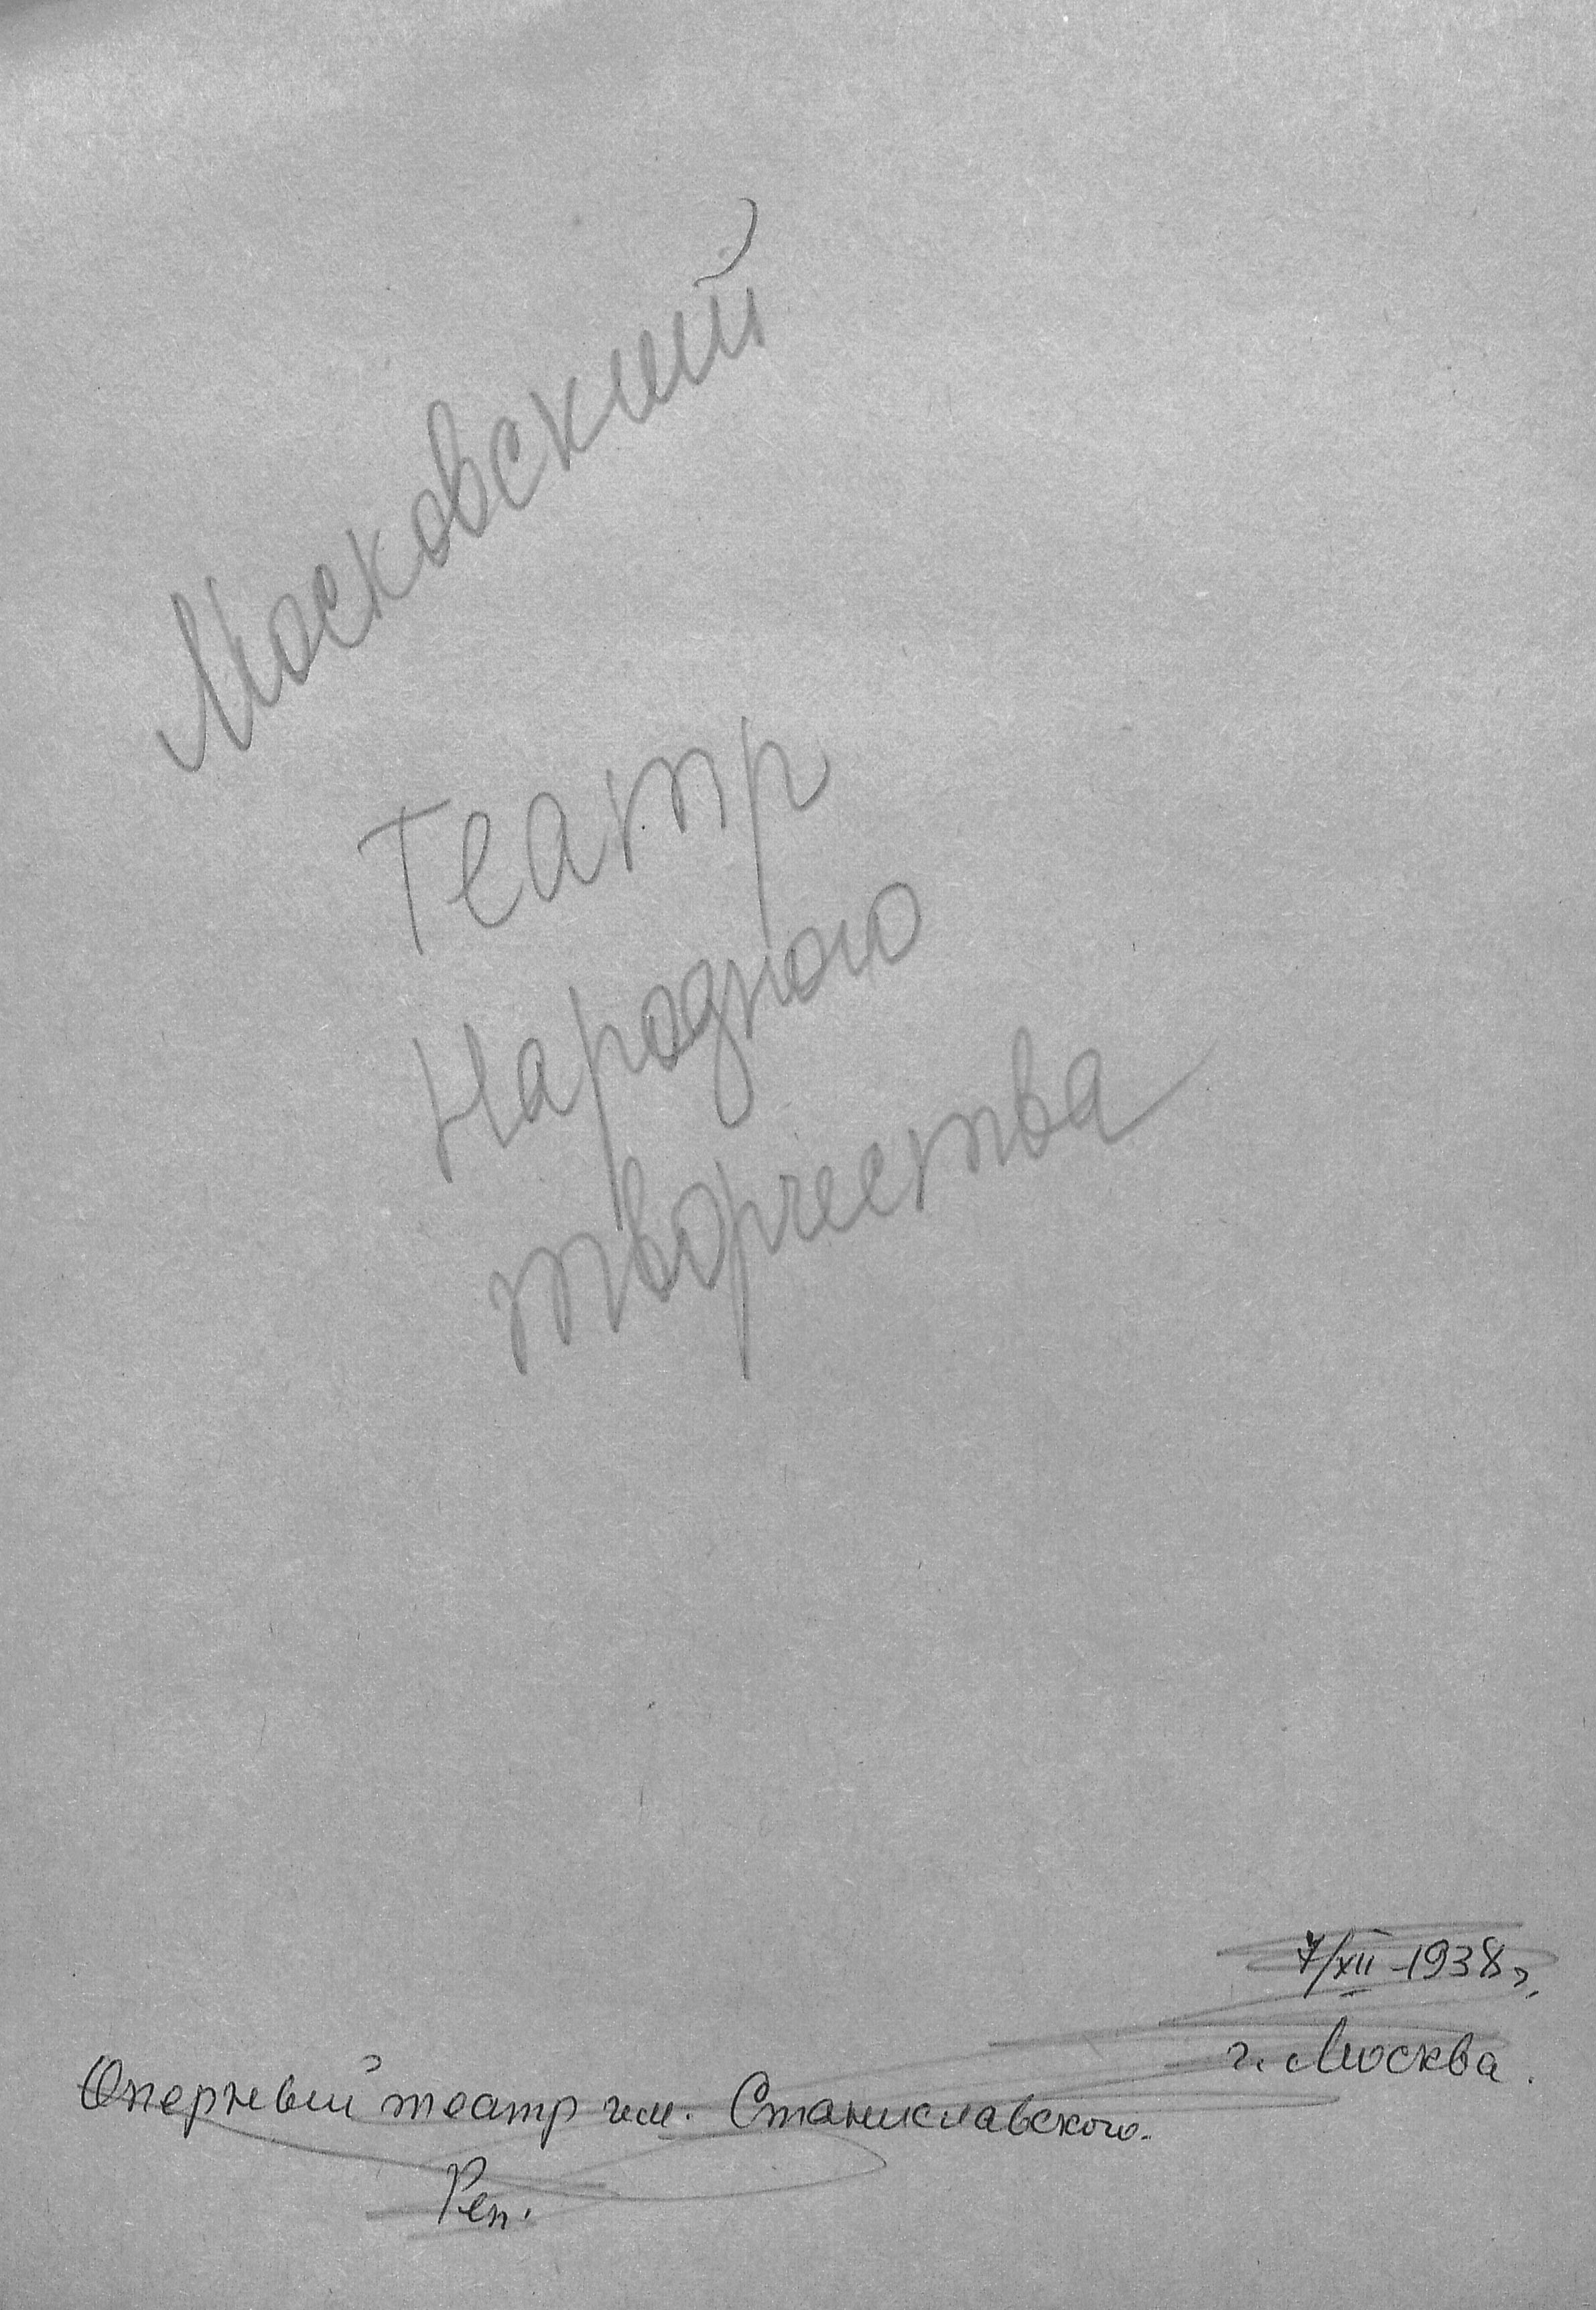 Московский
Театр
Народного
творчества
7/XII-1938 г.
г. Москва.
Оперный театр им. Станиславского.
Реп.